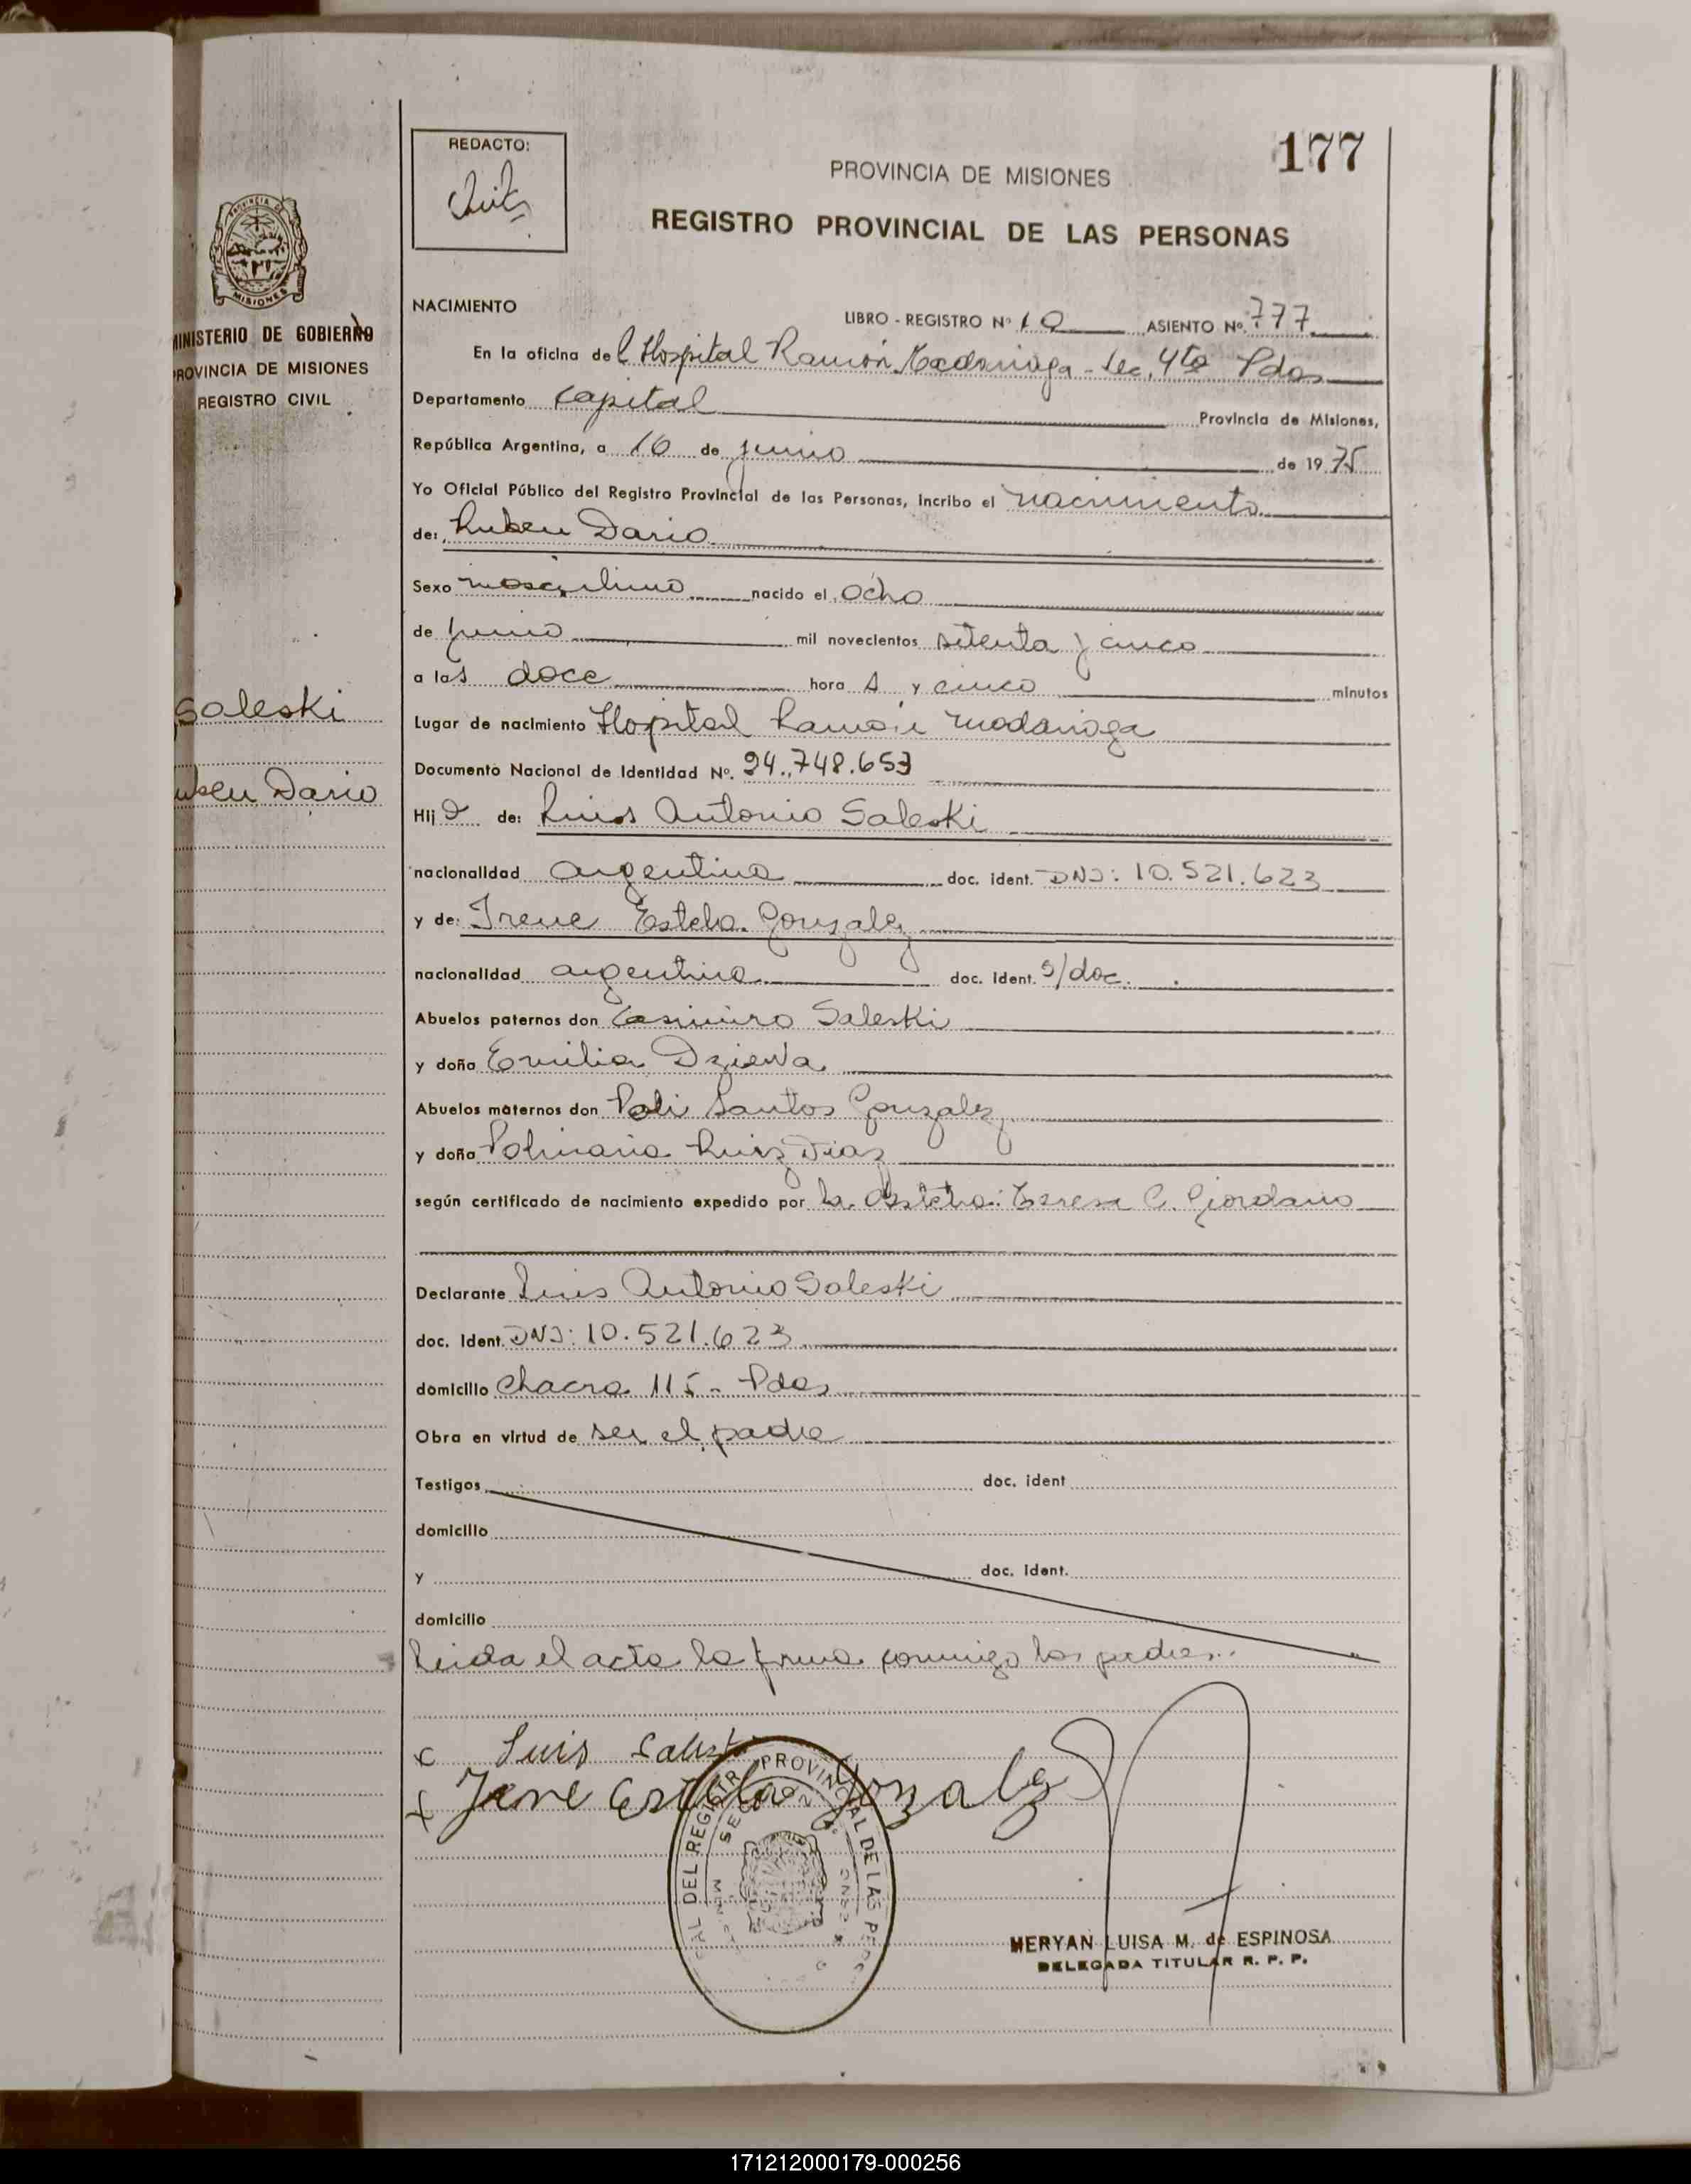 177
REDACTO:
PROVINCIA DE MISIONES
REGISTRO PROVINCIAL DE LAS PERSONAS
PROVINCIA DE
MISIONES
MINISTERIO DE GOBIERNO
PROVINCIA DE MISIONES
REGISTRO CIVIL
Saleski
uben Dario
NACIMIENTO
LIBRO - REGISTRO Nº 10 ASIENTO Nº 777
En la oficina del Hospital Ramón Madariaga - Sec. 4ta Pdas
Departamento Capital Provincia de Misiones,
República Argentina, a 10 de junio de 1975
Yo Oficial Público del Registro Provincial de las Personas, incribo el nacimiento
de: Ruben Dario
Sexo masculino nacido el ocho
de junio mil novecientos setenta y cinco
a las doce horas y cinco minutos
Lugar de nacimiento Hospital Ramón Madariaga
Documento Nacional de Identidad Nº. 24.748.653
Hijo de: Luis Antonio Saleski
nacionalidad argentina doc. ident. DNI: 10.521.623
y de: Irene Estela Gonzalez
nacionalidad argentina doc. ident. s/doc.
Abuelos paternos don Casimiro Saleski
y doña Emilia Dziewa
Abuelos maternos don Poli Santos Gonzalez
y doña Ruiz Diaz
según certificado de nacimiento expedido por la Teresa C. Giordano
Declarante Luis Antonio Saleski
doc. ident. DNI: 10.521.623
domicilio Chacra 115 - Pdas
Obra en virtud de ser el padre
Testigos doc. ident
domicilio
y doc. ident.
domicilio
Leida el acta la firma conmigo los padres.
x Luis Saleski
x Irene Estela Gonzalez
DEL REGISTRO PROVINCIAL DE LAS PERS
MERYAN LUISA M. de ESPINOSA
DELEGADA TITULAR R. P. P.
171212000179-000256